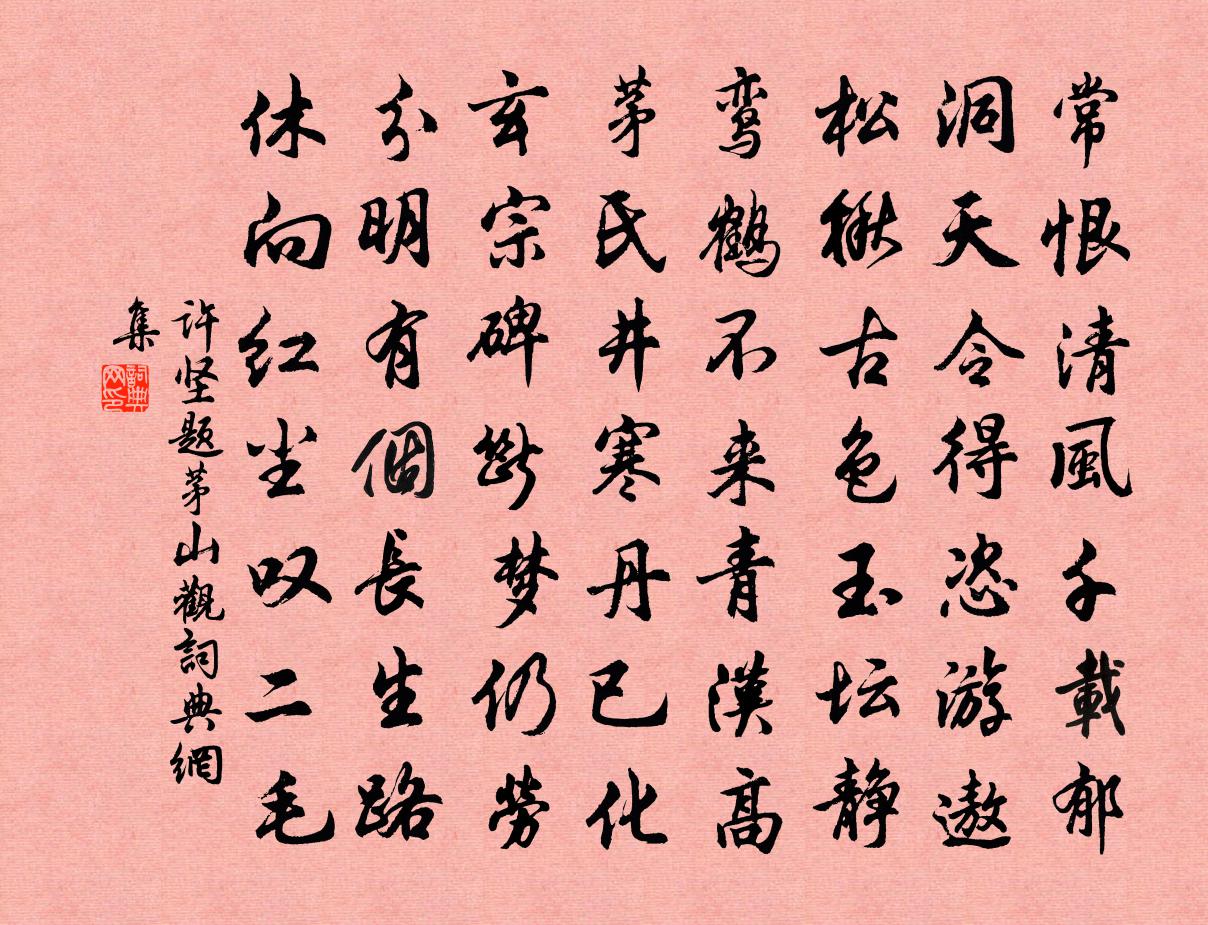 常恨清風千載郁
洞天令得恣游遨
松楸古色玉坛静
鸾鶴不来青漢高
茅氏井寒丹已化
玄宗碑断梦仍勞
分明有個長生路
休向红尘叹二毛
许坚题茅山觀詞典網
集
詞典网印